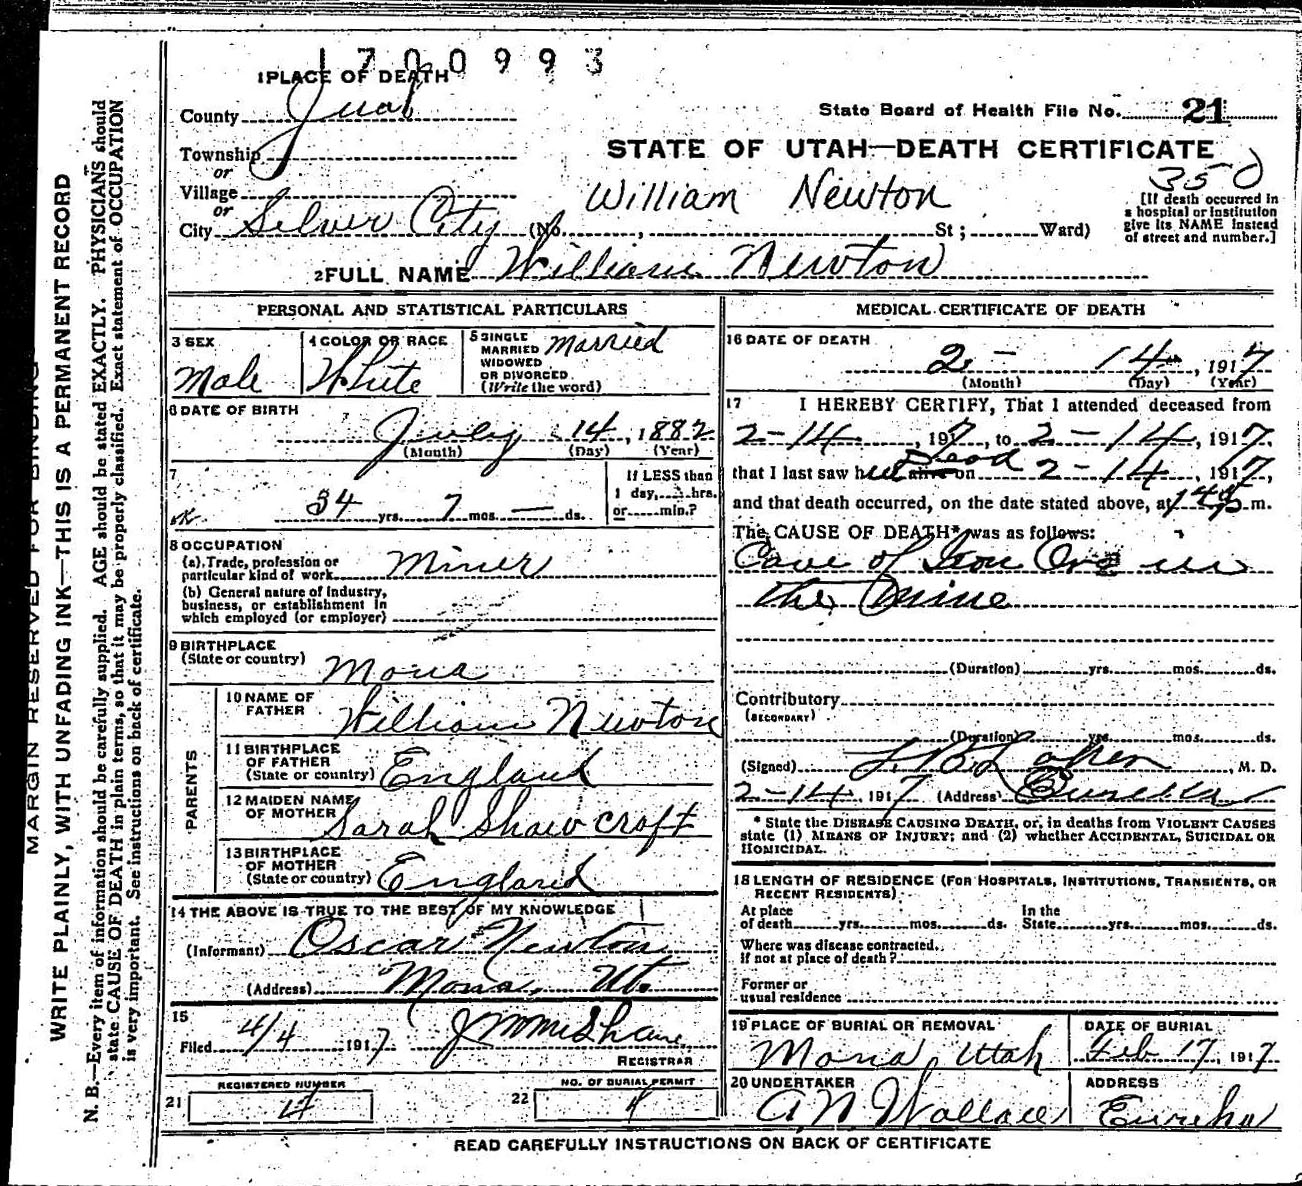 1700993
1 PLACE OF DEATH
County Juab
State Board of Health File No. 21
Township
or
STATE OF UTAH—DEATH CERTIFICATE
350
Village
or
William Newton
[If death occurred in
a hospital or institution
give its NAME instead
of street and number.]
City Silver City (No. , St ; Ward)
2 FULL NAME William Newton
PERSONAL AND STATISTICAL PARTICULARS
3 SEX
Male
4 COLOR OR RACE
White
5 SINGLE
MARRIED
WIDOWED
OR DIVORCED
(Write the word)
Married
6 DATE OF BIRTH
July 14, 1882
(Month) (Day) (Year)
7
34 yrs. 7 mos. — ds.
If LESS than
1 day, hrs.
or min.?
8 OCCUPATION
(a) Trade, profession or
particular kind of work Miner
(b) General nature of industry,
business, or establishment in
which employed (or employer)
9 BIRTHPLACE
(State or country) Mona
PARENTS
10 NAME OF
FATHER William Newton
11 BIRTHPLACE
OF FATHER
(State or country) England
12 MAIDEN NAME
OF MOTHER Sarah Shawcroft
13 BIRTHPLACE
OF MOTHER
(State or country) England
14 THE ABOVE IS TRUE TO THE BEST OF MY KNOWLEDGE
(Informant) Oscar Newton
(Address) Mona, Ut.
15
Filed 4/4 1917
REGISTRAR
REGISTERED NUMBER
21
NO. OF BURIAL PERMIT
22 4
MEDICAL CERTIFICATE OF DEATH
16 DATE OF DEATH
2 - 14, 1917
(Month) (Day) (Year)
17 I HEREBY CERTIFY, That I attended deceased from
2-14, 1917, to 2-14, 1917,
that I last saw him alive on Dead 2-14, 1917,
and that death occurred, on the date stated above, at m.
The CAUSE OF DEATH* was as follows:
Cave of Iron Ore in
the Mine
(Duration) yrs. mos. ds.
Contributory
(SECONDARY)
(Duration) yrs. mos. ds.
(Signed) , M. D.
2-14, 1917 (Address) Eureka
* State the DISEASE CAUSING DEATH, or, in deaths from VIOLENT CAUSES
state (1) MEANS OF INJURY; and (2) whether ACCIDENTAL, SUICIDAL OR
HOMICIDAL.
18 LENGTH OF RESIDENCE (FOR HOSPITALS, INSTITUTIONS, TRANSIENTS, OR
RECENT RESIDENTS)
At place
of death yrs. mos. ds.
In the
State yrs. mos. ds.
Where was disease contracted,
if not at place of death?
Former or
usual residence
19 PLACE OF BURIAL OR REMOVAL
Mona, Utah
DATE OF BURIAL
Feb 17, 1917
20 UNDERTAKER
A. N. Wallace
ADDRESS
Eureka
READ CAREFULLY INSTRUCTIONS ON BACK OF CERTIFICATE
MARGIN RESERVED FOR BINDING
WRITE PLAINLY, WITH UNFADING INK—THIS IS A PERMANENT RECORD
N. B.—Every item of information should be carefully supplied. AGE should be stated EXACTLY. PHYSICIANS should
state CAUSE OF DEATH in plain terms, so that it may be properly classified. Exact statement of OCCUPATION
is very important. See instructions on back of certificate.